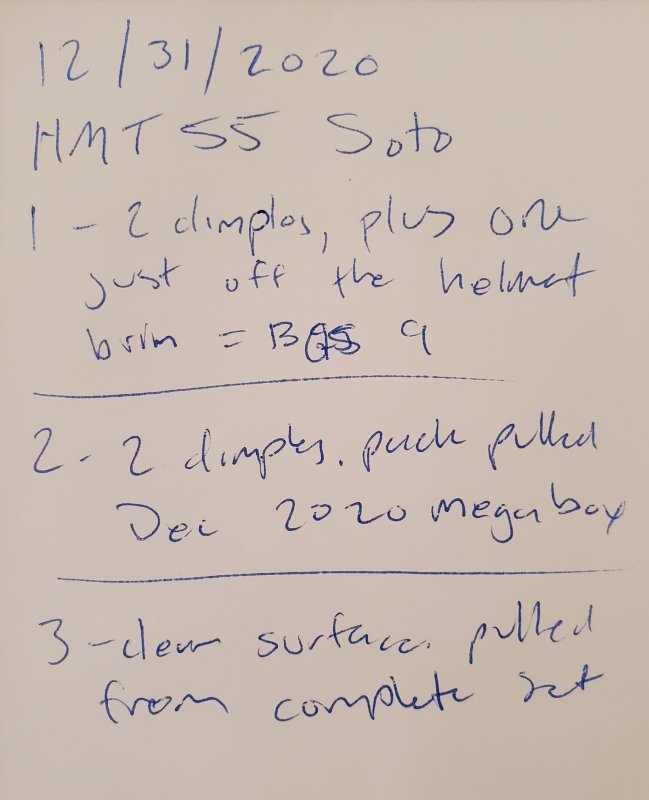 12/31/2020
HMT 55 Soto
1 - 2 dimples, plus one
just off the helmet
brim = BGS 9
2 - 2 dimples. pack pulled
Dec 2020 mega box
3 - clean surface. pulled
from complete set